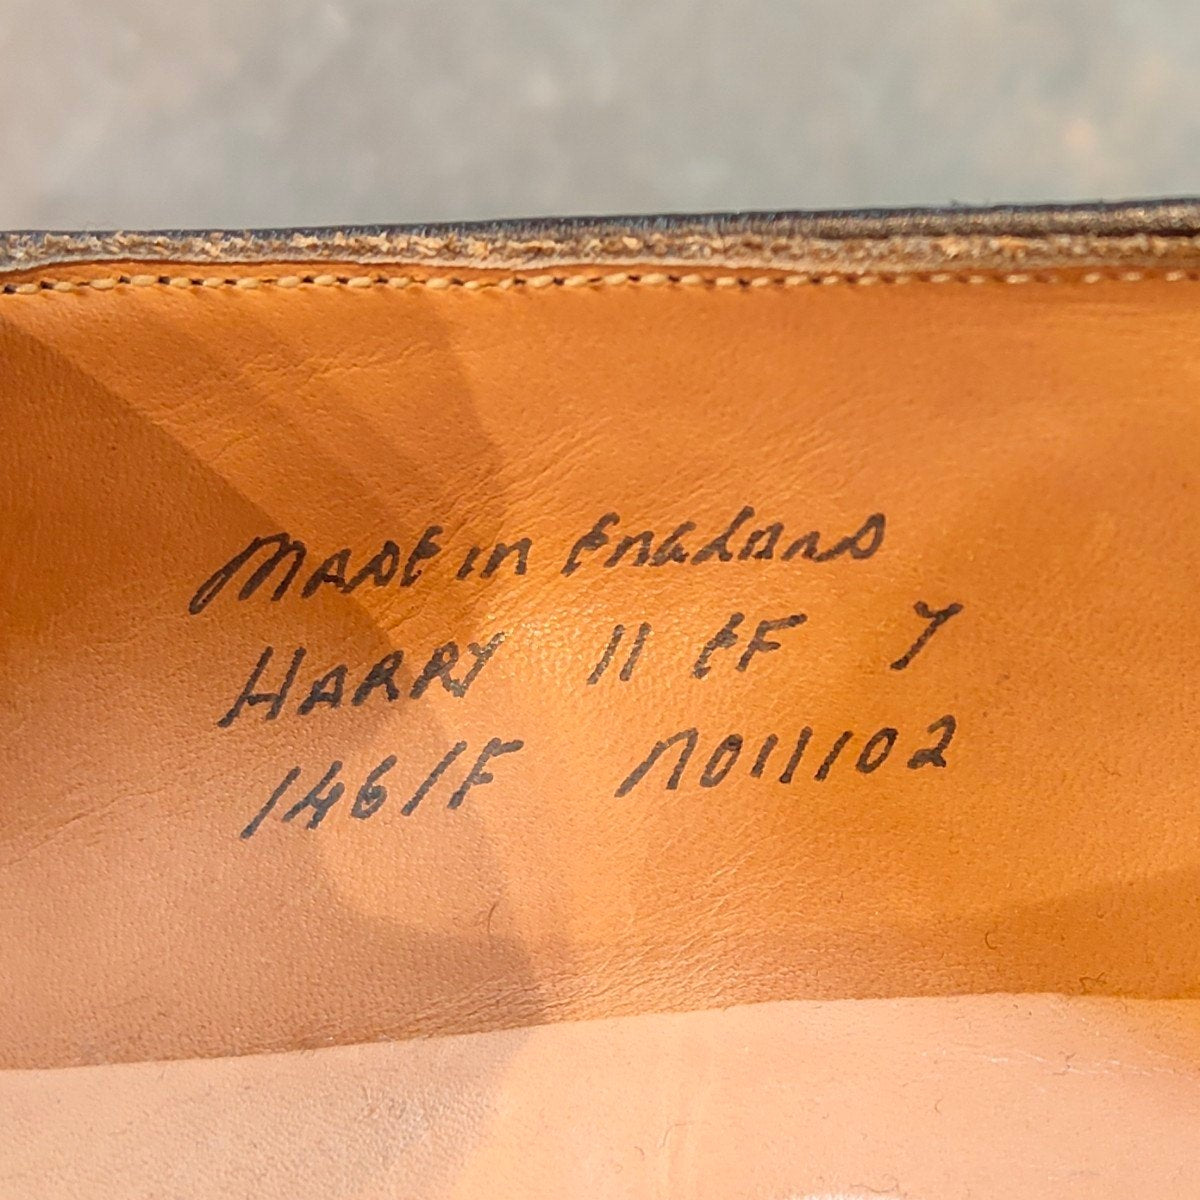 MADE in EngLAnD
HARRY 11 EF 7
146/F N011102